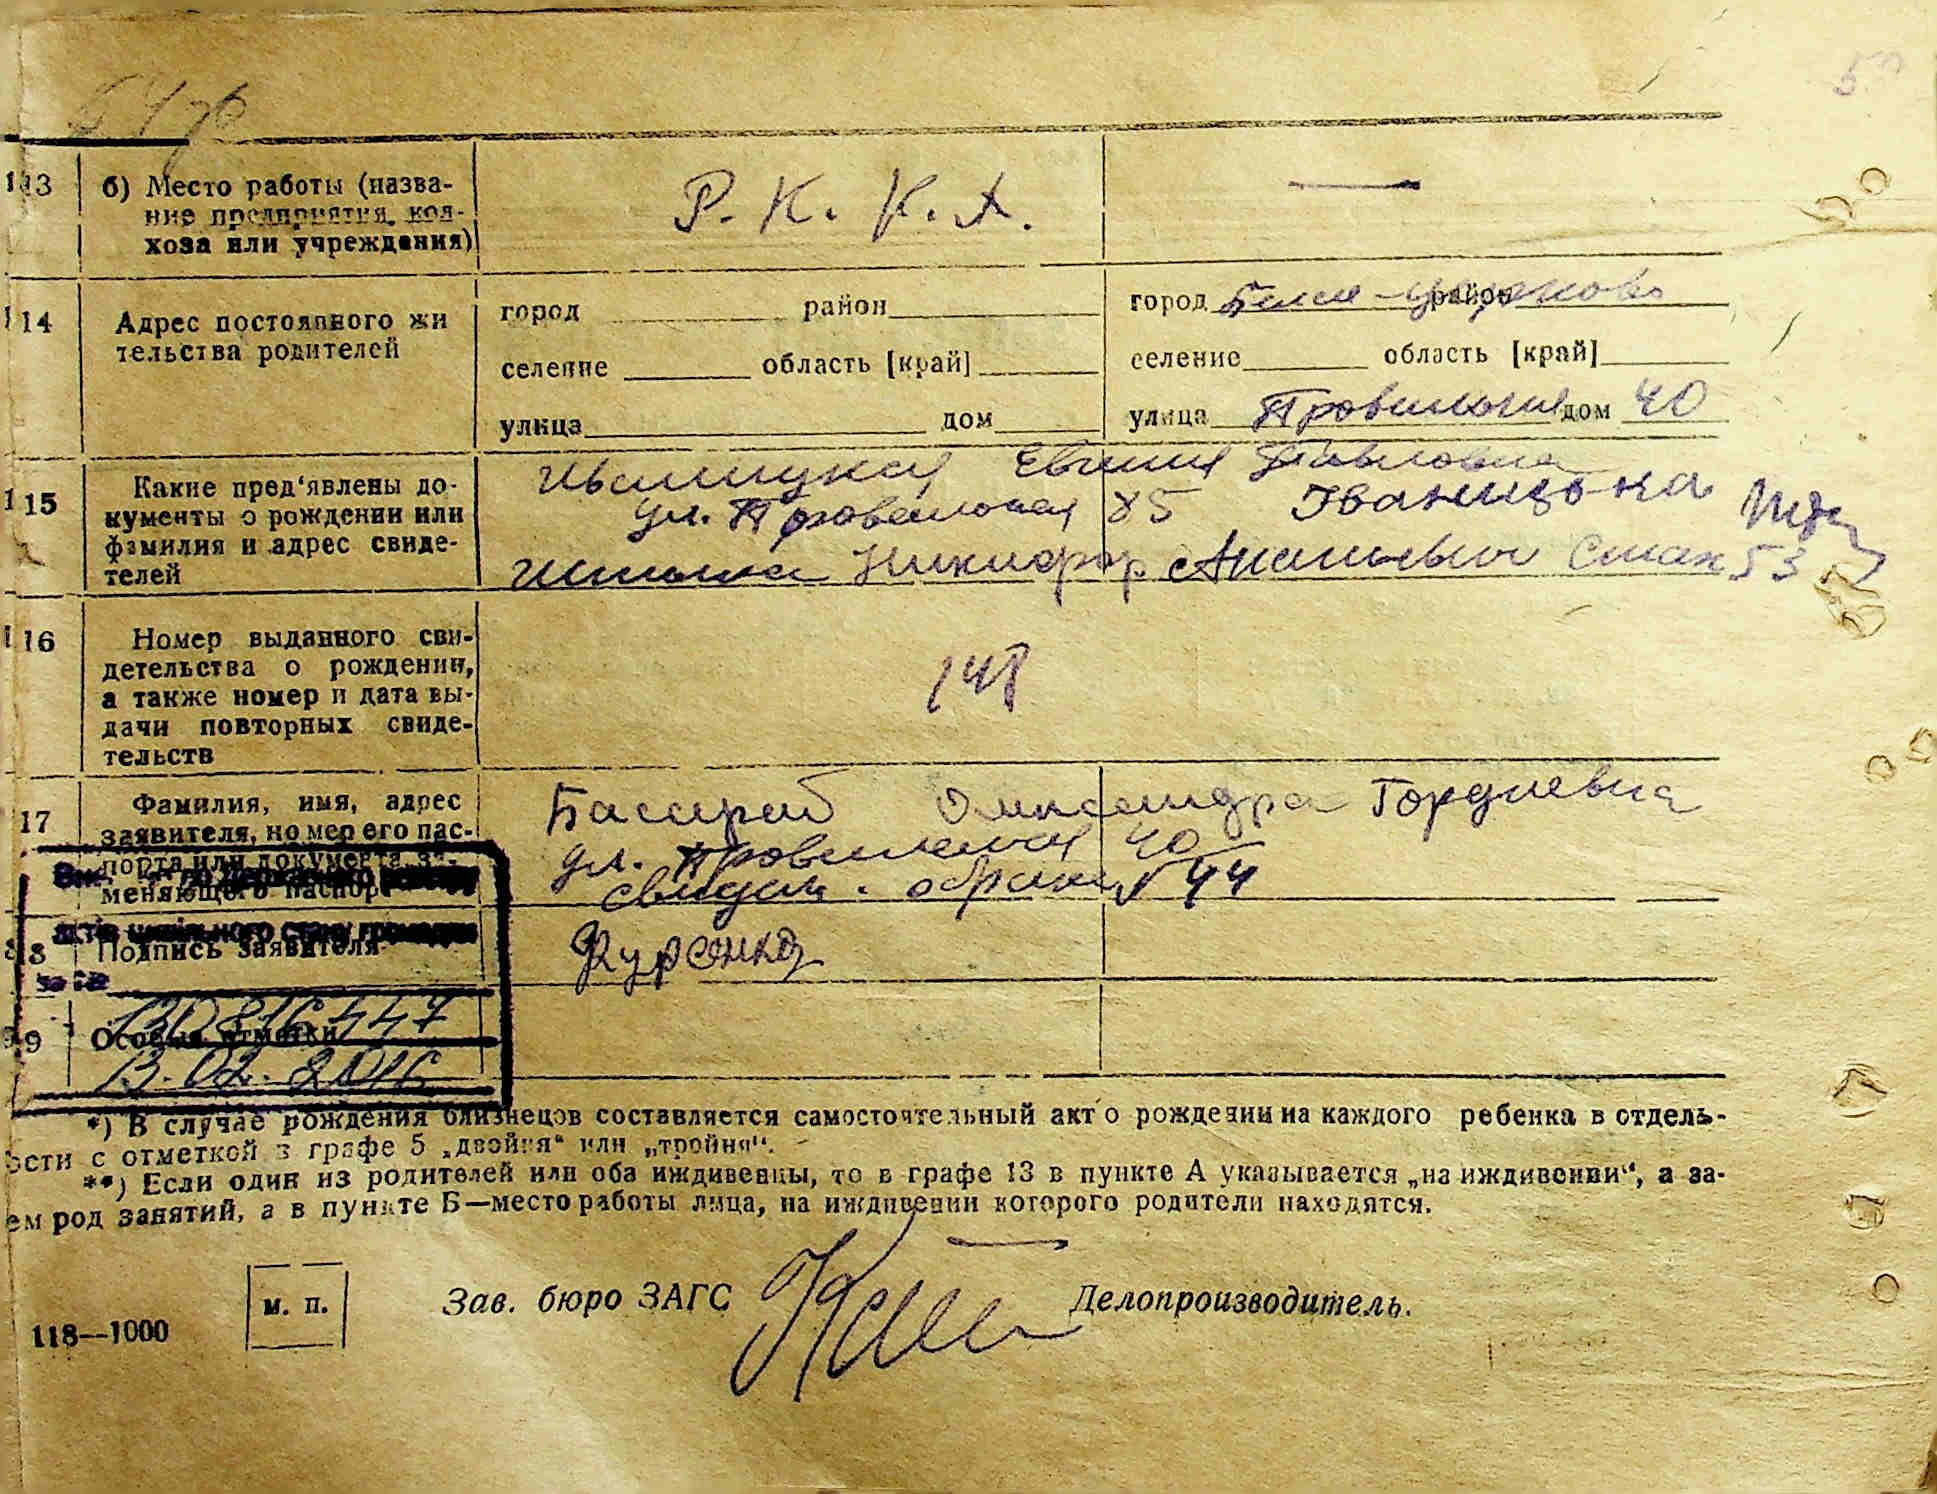 13 б) Место работы (назва-
ние предприятия, кол-
хоза или учреждения)
Р. К. К. А. —
14 Адрес постоянного жи
тельства родителей
город район
селение область [край]
улица дом
город Белая-Церковь район
селение область [край]
улица дом 40
15 Какие пред‘явлены до-
кументы о рождении или
фамилия и адрес свиде-
телей
Иваницкая Евгения Павловна
ул. 85 Іваницька
Никифор Ананьевич 53
16 Номер выданного сви-
детельства о рождении,
а также номер и дата вы-
дачи повторных свиде-
тельств
148
17 Фамилия, имя, адрес
заявителя, номер его пас-
порта или документа, за-
меняющего паспорт
Александра Гордиевна
ул. 40
свидет. о браке № 44
18 Подпись заявителя
Фурсенко
19 Особые отметки
13.02.2016
*) В случае рождения близнецов составляется самостоятельный акт о рождении на каждого ребенка в отдель-
ости с отметкой в графе 5 „двойня“ или „тройня“.
**) Если один из родителей или оба иждивенцы, то в графе 13 в пункте А указывается „на иждивении“, а за-
ем род занятий, а в пункте Б—место работы лица, на иждивении которого родители находятся.
м. п.
Зав. бюро ЗАГС Делопроизводитель.
118—1000